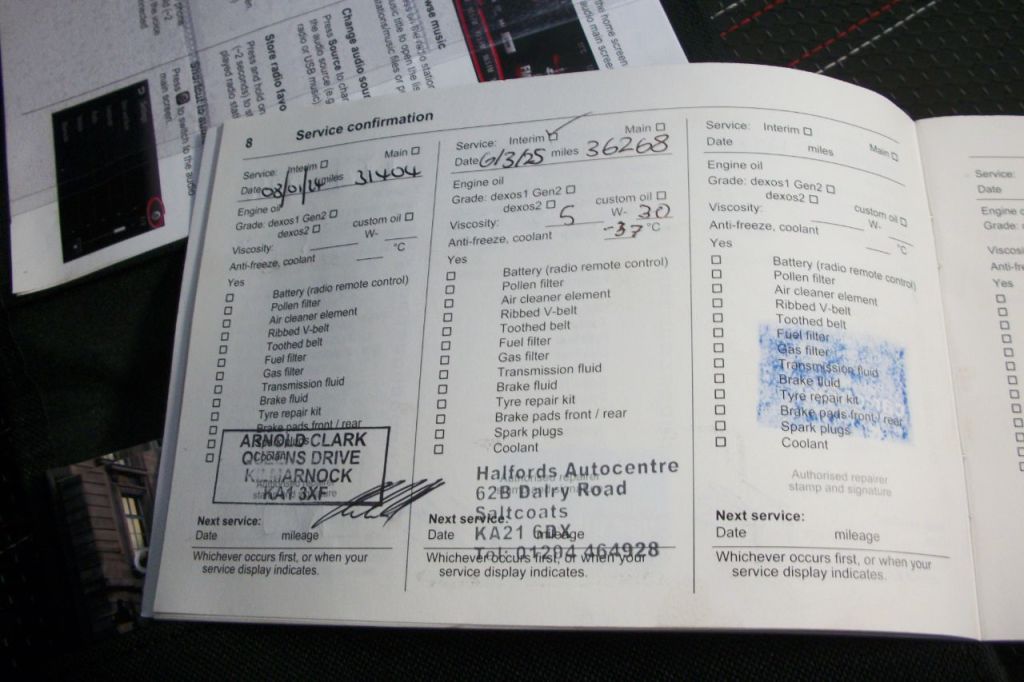 wse music
Press on the radio station
music title to open the lis
Change audio sour
Press Source to char
the audio source (e.g
radio or USB music)
Store radio favo
Press and hold on
(~2 seconds) to st
played radio stat
Press to switch to the audio
main screen.
the home screen
audio main screen
8 Service confirmation
Service: Interim Main
Date 03/01/24 miles 31404
Engine oil
Grade: dexos1 Gen2
dexos2 custom oil
Viscosity: W-
Anti-freeze, coolant °C
Yes
Battery (radio remote control)
Pollen filter
Air cleaner element
Ribbed V-belt
Toothed belt
Fuel filter
Gas filter
Transmission fluid
Brake fluid
Tyre repair kit
Brake pads front / rear
Spark plugs
Coolant
ARNOLD CLARK
QUEENS DRIVE
KILMARNOCK
KA1 3XF
Authorised repairer
stamp and signature
Next service:
Date mileage
Whichever occurs first, or when your
service display indicates.
Service: Interim ✓ Main
Date 6/3/25 miles 36268
Engine oil
Grade: dexos1 Gen2
dexos2 custom oil
Viscosity: 5 W- 30
Anti-freeze, coolant -37 °C
Yes
Battery (radio remote control)
Pollen filter
Air cleaner element
Ribbed V-belt
Toothed belt
Fuel filter
Gas filter
Transmission fluid
Brake fluid
Tyre repair kit
Brake pads front / rear
Spark plugs
Coolant
Halfords Autocentre
62B Dalry Road
Saltcoats
KA21 6DX
Tel: 01294 464928
Next service:
Date mileage
Whichever occurs first, or when your
service display indicates.
Service: Interim Main
Date miles
Engine oil
Grade: dexos1 Gen2
dexos2 custom oil
Viscosity: W-
Anti-freeze, coolant °C
Yes
Battery (radio remote control)
Pollen filter
Air cleaner element
Ribbed V-belt
Toothed belt
Fuel filter
Gas filter
Transmission fluid
Brake fluid
Tyre repair kit
Brake pads front / rear
Spark plugs
Coolant
Authorised repairer
stamp and signature
Next service:
Date mileage
Whichever occurs first, or when your
service display indicates.
Service:
Date
Engine
Grade:
Anti-fr
Yes